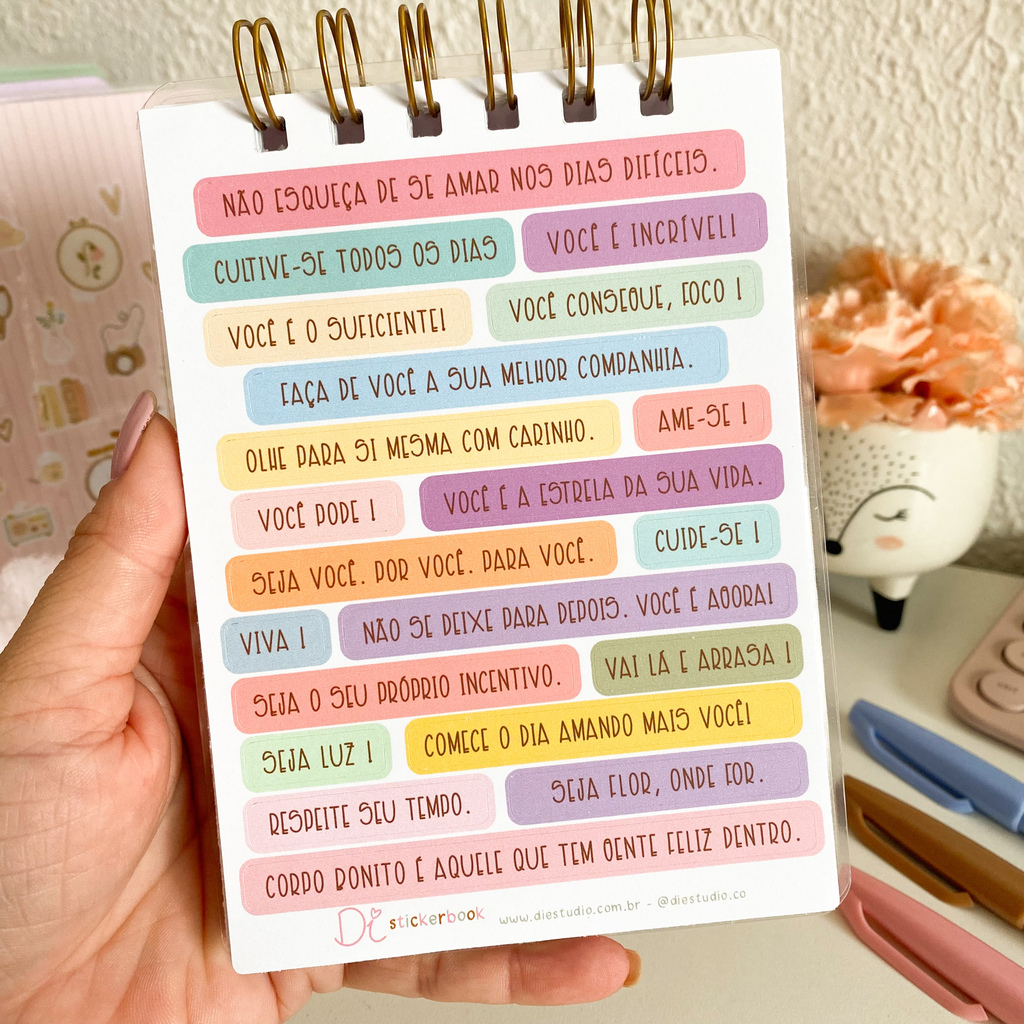 NÃO ESQUEÇA DE SE AMAR NOS DIAS DIFÍCEIS.
CULTIVE-SE TODOS OS DIAS
VOCÊ É INCRÍVEL!
VOCÊ É O SUFICIENTE!
VOCÊ CONSEGUE, FOCO !
FAÇA DE VOCÊ A SUA MELHOR COMPANHIA.
OLHE PARA SI MESMA COM CARINHO.
AME-SE !
VOCÊ PODE !
VOCÊ É A ESTRELA DA SUA VIDA.
SEJA VOCÊ. POR VOCÊ. PARA VOCÊ.
CUIDE-SE !
VIVA !
NÃO SE DEIXE PARA DEPOIS. VOCÊ É AGORA!
SEJA O SEU PRÓPRIO INCENTIVO.
VAI LÁ E ARRASA !
SEJA LUZ !
COMECE O DIA AMANDO MAIS VOCÊ!
RESPEITE SEU TEMPO.
SEJA FLOR, ONDE FOR.
CORPO BONITO É AQUELE QUE TEM GENTE FELIZ DENTRO.
Di stickerbook www.diestudio.com.br - @diestudio.co